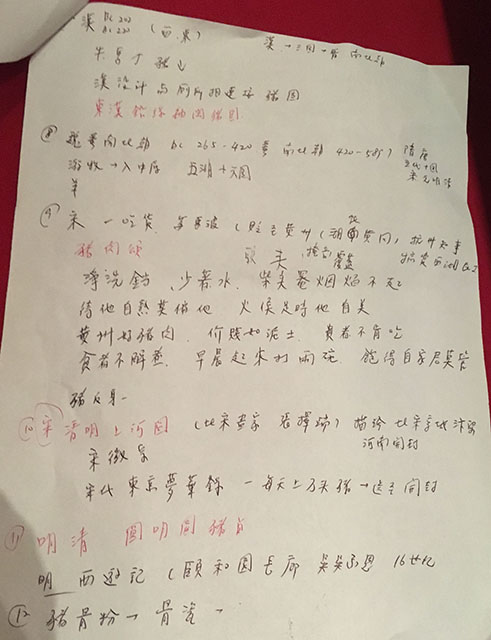 漢 BC 202 AC 220 (西.東) 漢→三國→晉 南北朝
漢設計与厕所相連接 豬圈
東漢 綠釉陶豬圈
⑧ 魏晉南北朝 BC 265-420 晉 南北朝 420-589) 隋唐
五代十國
游牧→入中原 五胡十六國 宋元明清
羊
⑨ 宋 一吃货 苏東坡 (贬至黄州 (湖北黄冈), 杭州知事
豬肉頌
淨洗鐺 少著水 柴头罨烟焰不起
待他自熟莫催他 火候足時他自美
黄州好豬肉 价贱如泥土 貴者不肯吃
貧者不解煮 早晨起來打兩碗 飽得自家君莫管
⑩ 宋 清明上河圖 (北宋画家 張擇端) 描绘北宋京城汴梁
河南開封
宋徽宗
宋代 東京夢華錄 一每天上万头豬→送至開封
⑪ 明清 圆明園豬首
明 西遊記 (頤和園長廊 吳承恩 16世纪
⑫ 豬骨粉→骨瓷→